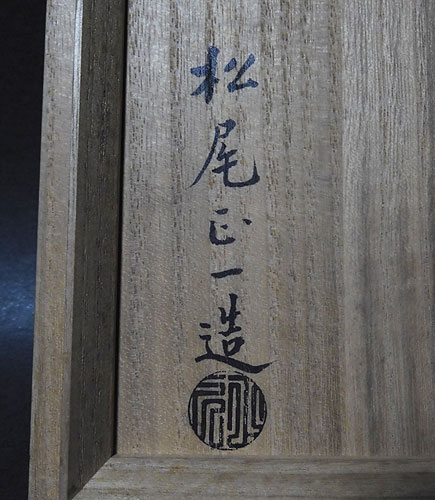 松尾正一造